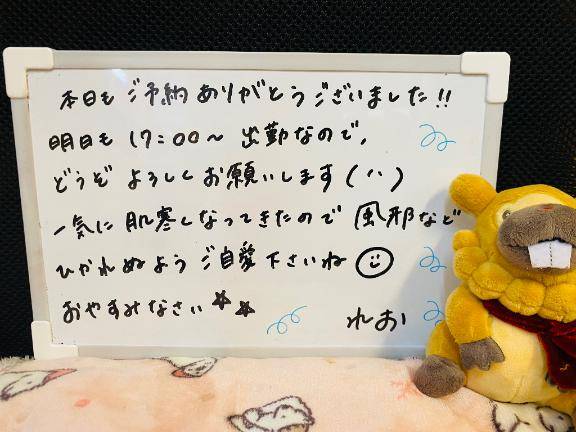 本日も ご予約 ありがとうございました!!
明日も 17:00〜 出勤なので、
どうぞ よろしくお願いします(¨)
一気に 肌寒くなってきたので 風邪など
ひかれぬよう ご自愛下さいね☺
おやすみなさい☆★
れお